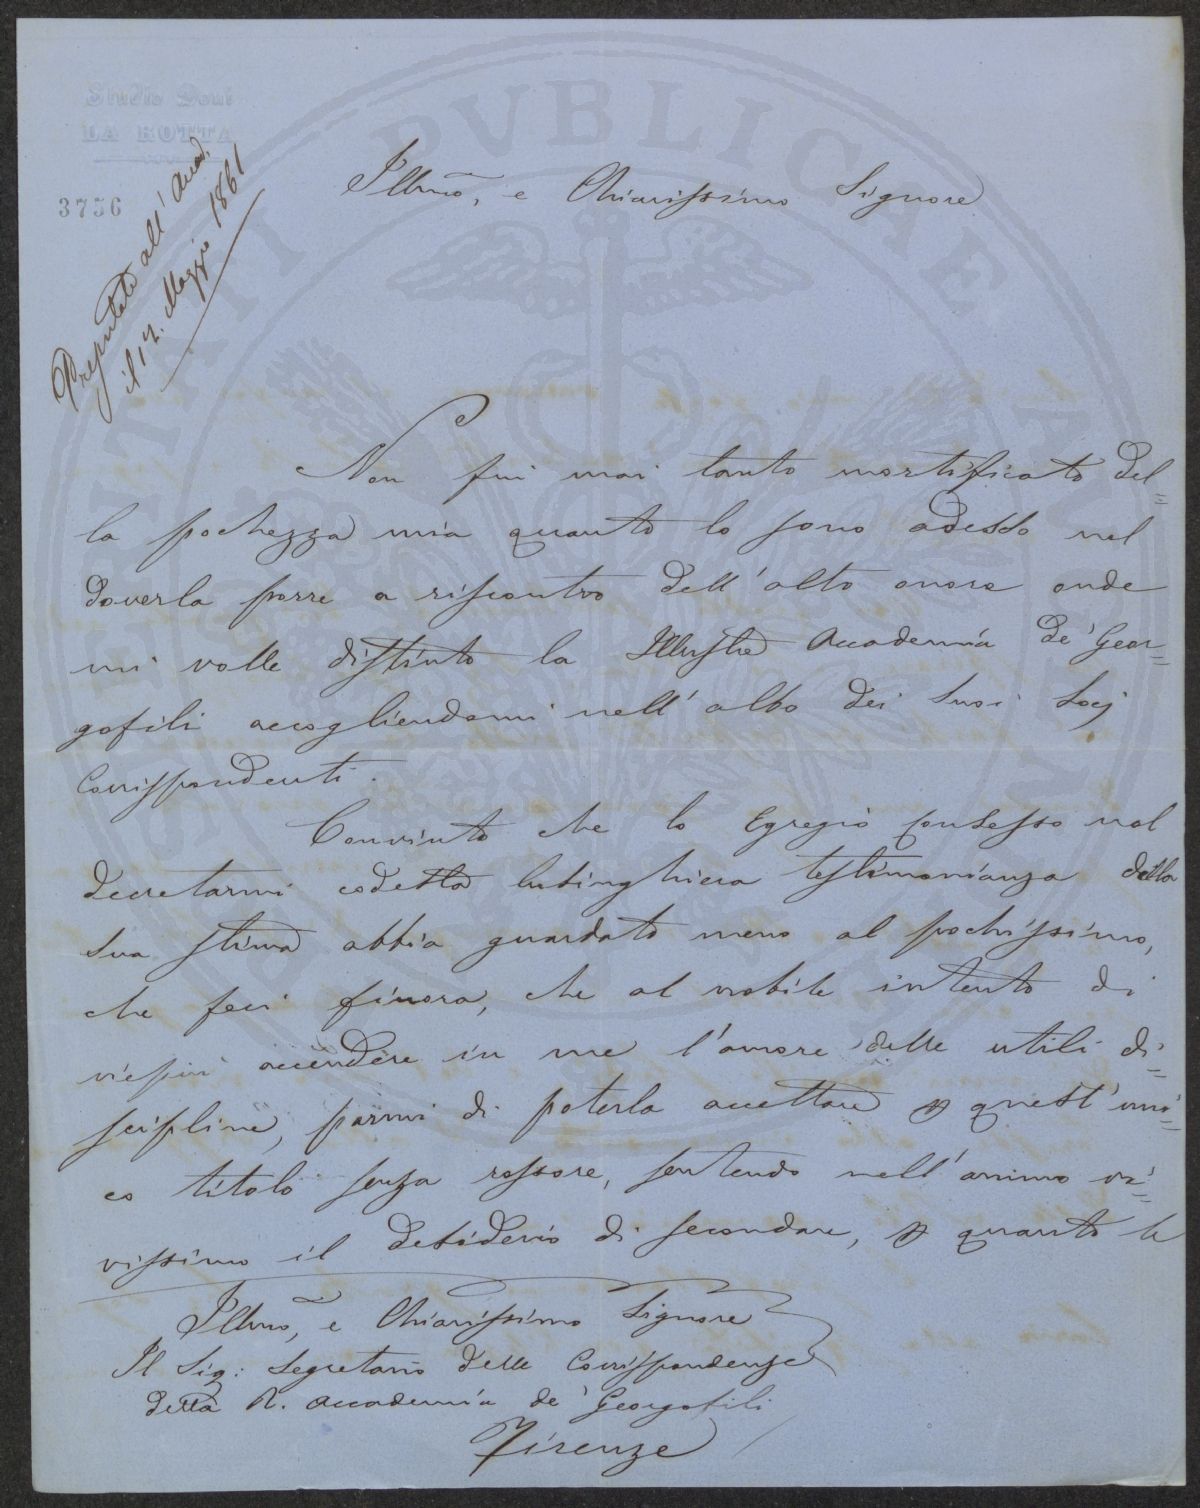 Studio Doni
LA ROTTA
3756
Presentata all' Accad.
il 12. Maggio 1861
Illmo, e Chiarissimo Signore
Non fui mai tanto mortificato del=
la pochezza mia quanto lo sono adesso nel
doverla porre a riscontro dell' alto onore onde
mi volle distinto la Illustre Accademia de' Geor=
gofili accogliendomi nell' albo dei Suoi Socj
Corrispondenti.
Convinto che lo Egregio Consesso nel
decretarmi codesta lusinghiera testimonianza della
Sua stima abbia guardato meno al pochissimo,
che feci finora, che al nobile intento di
viepiù accendere in me l'amore delle utili di=
scipline, parmi di poterla accettare p quest' uni=
co titolo senza rossore, sentendo nell' animo vi=
vissimo il desiderio di secondare, p quanto le
Illmo, e Chiarissimo Signore
Il Sig: Segretario delle Corrispondenze
della R. Accademia de' Georgofili
Firenze
PVBLICAE